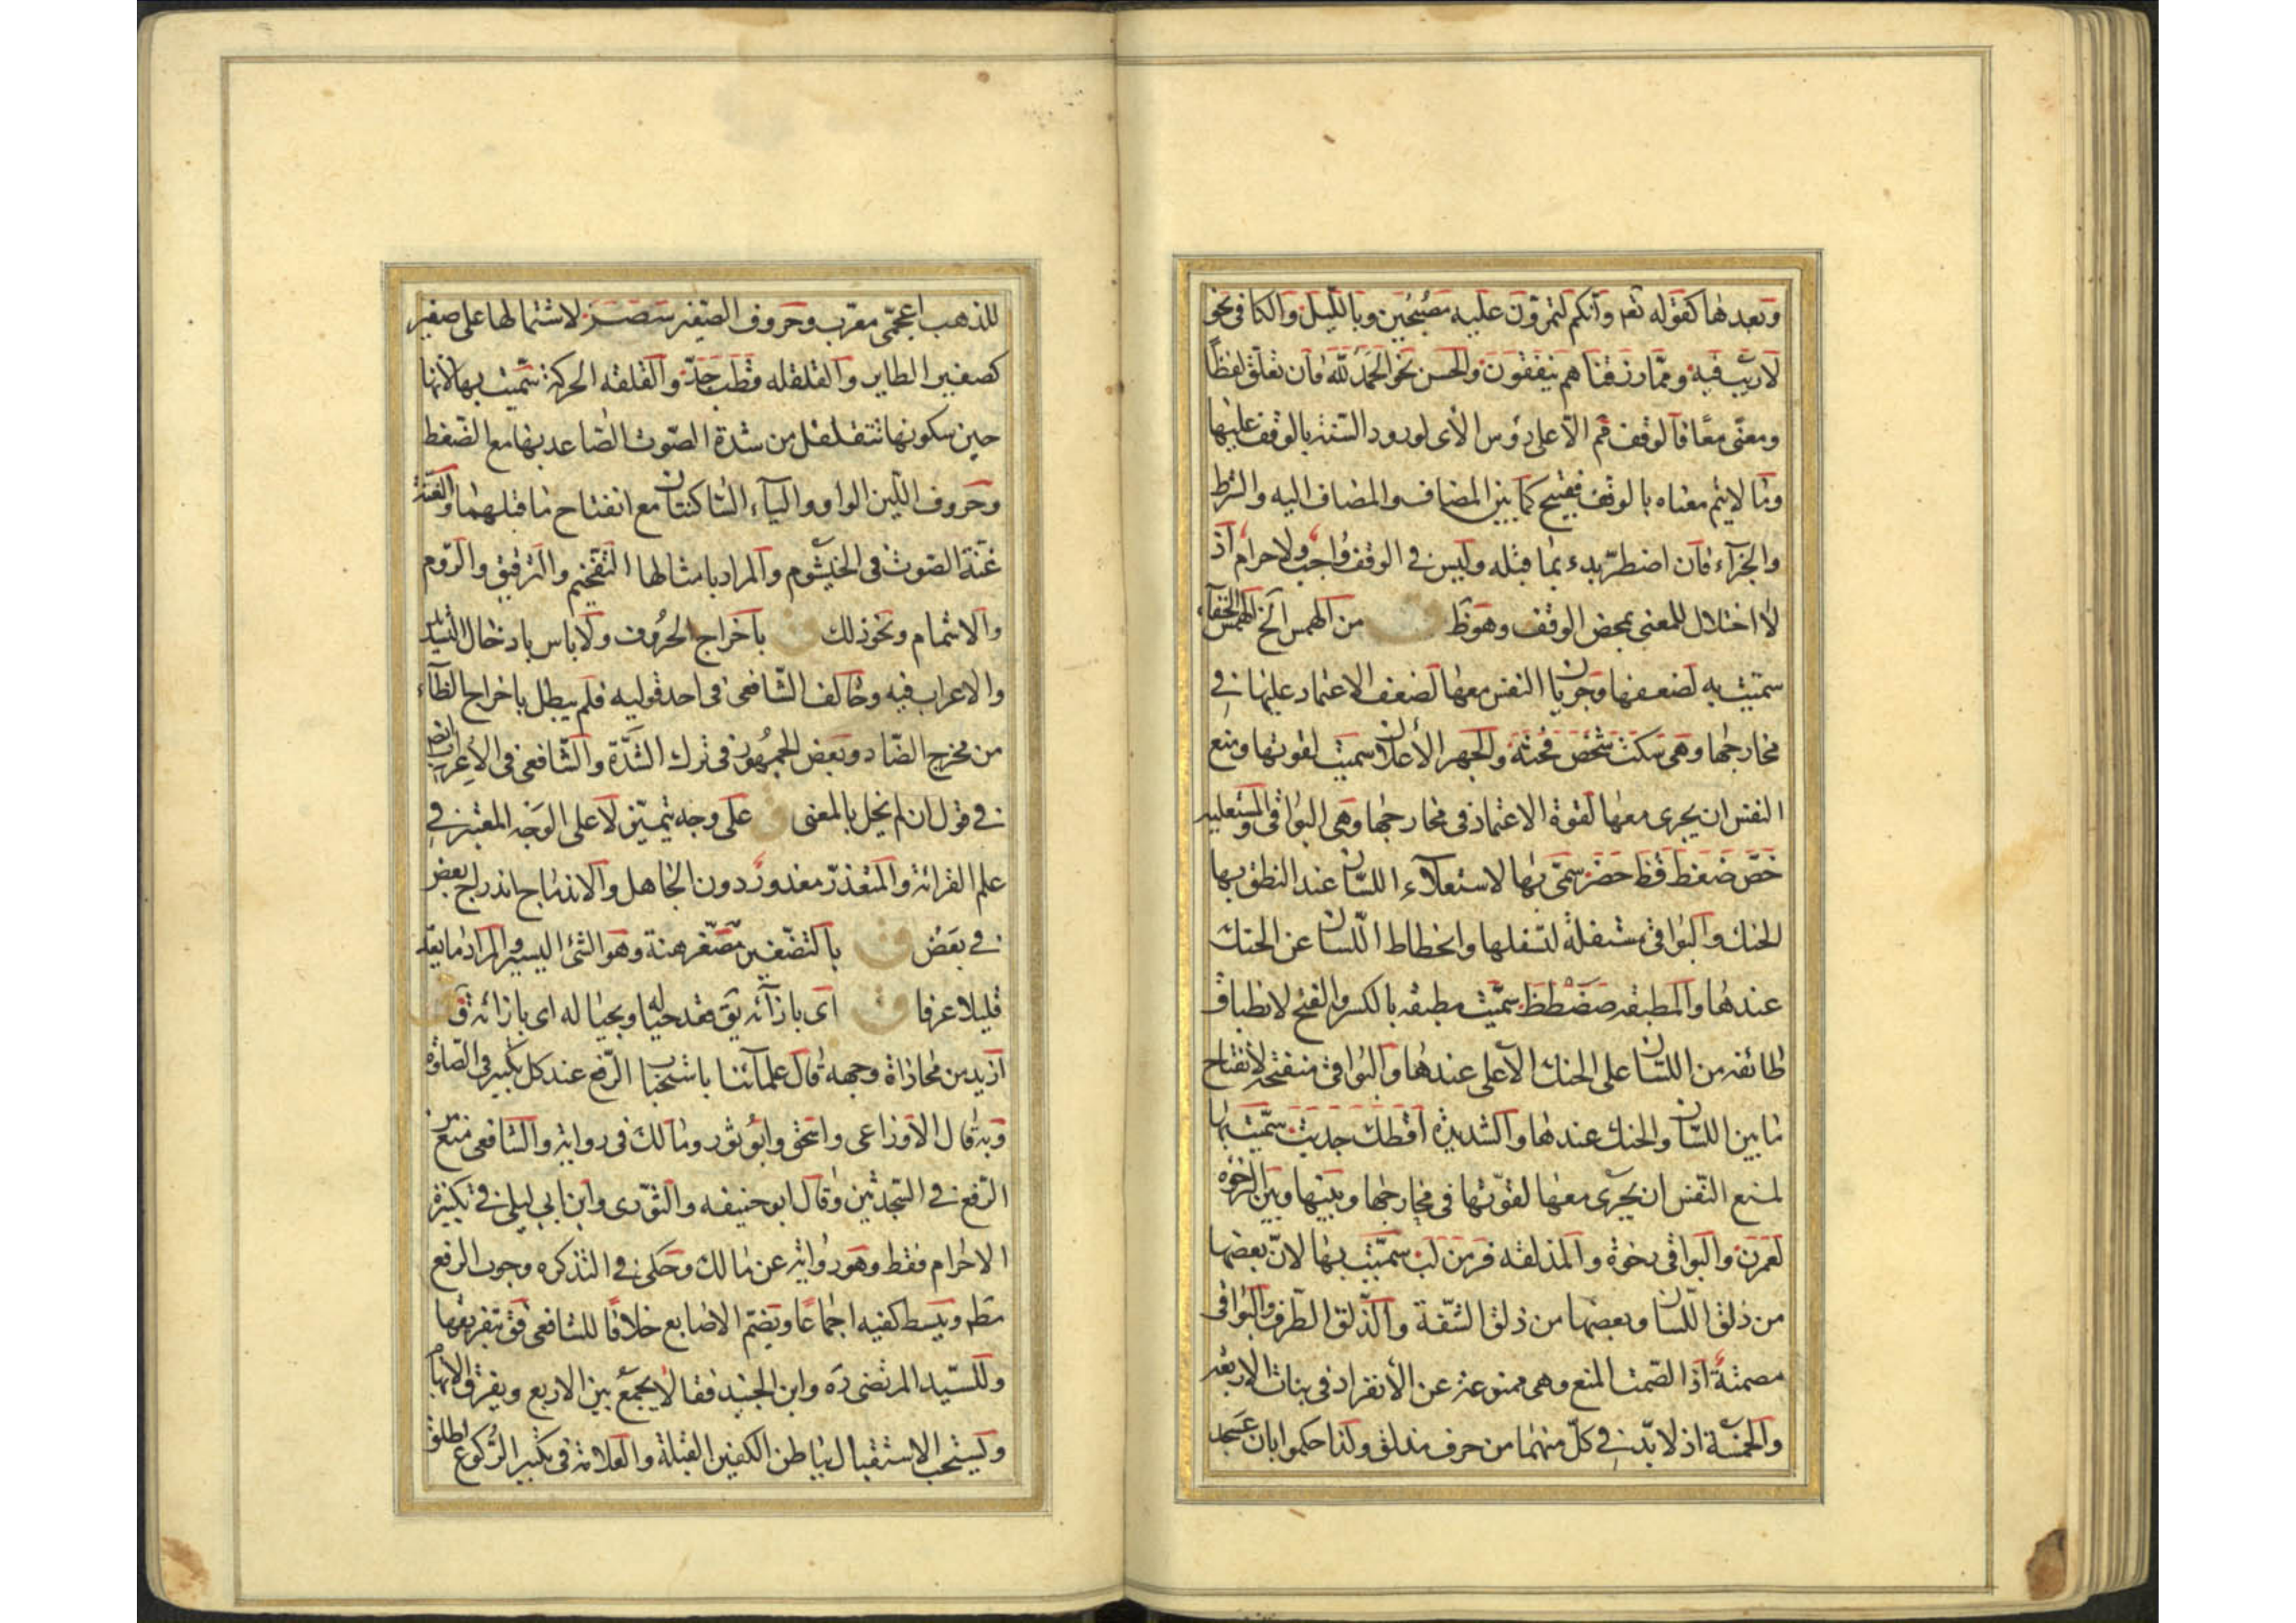 وبعدها كقوله تعم وانكم لتمرون عليه مصبحين وبالليل والكافى نحو
لاريب فيه ومما رزقناهم ينفقون والحسن نحو الحمد لله فان تعلق لفظا
ومعنى معا فالوقف قم الا على رؤس الأى لورود السنة بالوقف عليها
وما لا يتم معناه بالوقف فقبيح كما بين المضاف والمضاف اليه والشرط
والجزآء فان اضطر بدء بما قبله وليس فى الوقف واجب ولا حرام اذ
لا اختلال للمعنى بمحض الوقف وهو ظ ق من الهمس الخ الهمس الخفاء
سميت به لضعفها وجريان النفس معها لضعف الاعتماد عليها فى
مخارجها وهى سكت شخص فحثه والجهر الأعلان سميت لقوتها ومنع
النفس ان يجرى معها لقوة الاعتماد فى مخارجها وهى البواقى والمستعلية
خص ضغط قظ حضر سمى بها لاستعلاء اللسان عند النطق بها
الحنك والبواقى مستفلة لتسفلها وانحطاط اللسان عن الحنك
عندها والمطبقه صضطظ سميت مطبقه بالكسر والفتح لانطباق
طائفه من اللسان على الحنك الأعلى عندها والبواقى منفتحة لانفتاح
ما بين اللسان والحنك عندها والشديدة اقطك جدبت سميت بها
لمنع النفس ان يجرى معها لقوتها فى مخارجها وبينها وبين الرخوه
لعمرن والبواقى رخوة والمذلقه فرمن لب سميت بها لان بعضها
من ذلق اللسان وبعضها من ذلق الشفة والذلق الطرف والبواقى
مصمتة اذ الصمت المنع وهى ممنوعة عن الأنفراد فى بنات الاربعه
والخمسة اذ لا بد فى كل منهما من حرف مذلق وكذا حكموا بان عسجد
للذهب اعجمى معرب وحروف الصفير سصز لاشتمالها على صفير
كصفير الطاير والقلقله قطب جد والقلقه الحركة سميت بها لأنها
حين سكونها تتقلقل من شدة الصوت الصاعد بها مع الضغط
وحروف اللين الواو والياء الساكنتان مع انفتاح ما قبلهما والغنة
غنة الصوت فى الخيشوم والمراد بامثالها التفخيم والترقيق والروم
والاشمام ونحو ذلك ق باخراج الحروف ولا باس بادخال التشديد
والاعراب فيه وخالف الشافعى فى احد قوليه فلم يبطل باخراج الظآء
من مخرج الضاد وبعض الجمهور فى ترك الشدة والشافعى فى الاعراب
فى قول ان لم يخل بالمعنى ق على وجه يتميز لا على الوجه المعتبر فى
علم القرائة والمتعذر معذور دون الجاهل والاندماج اندراج بعض
فى بعض ق بالتضغير مصغر هنة وهو الشئ اليسير والمراد ما يعد
قليلا عرفا ق اى بازآئه يق قعد حياله وبحياله اى بازائه ق ق
ازيد من محاذاة وجهه قال علمآئنا باستحباب الرفع عند كل تكبير فى الصلوة
وبه قال الاوزاعى واسحق وابو ثور ومالك فى رواية والشافعى منع من
الرفع فى السجدتين وقال ابو حنيفه والثورى وابن ابى ليلى فى تكبيرة
الاحرام فقط وهو رواية عن مالك وحكى فى التذكره وجوب الرفع
مطم ويبسط كفيه اجماعا ويضم الاصابع خلافا للشافعى فق بتفريقها
وللسيد المرتضى ره وابن الجنيد فقالا يجمع بين الاربع ويفرق الابهام
ويستحب الاستقبال بباطن الكفين القبلة والعلامة فى تكبير الركوع اطلق